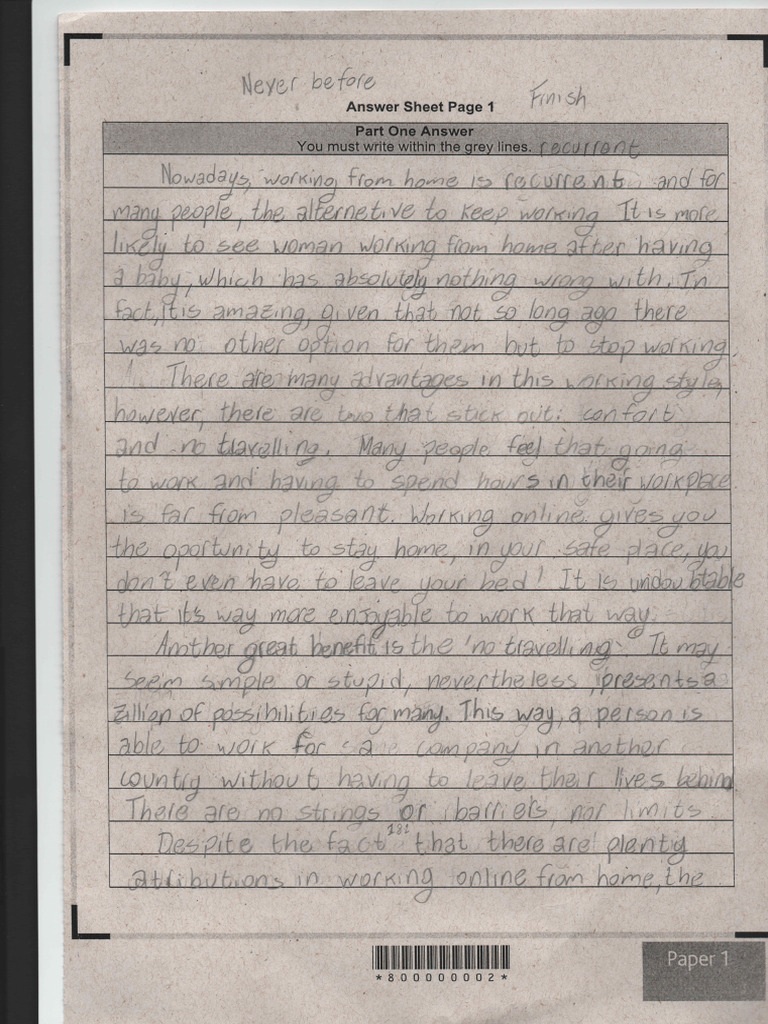 Never before
Finish
Answer Sheet Page 1
Part One Answer
You must write within the grey lines. recurrent
Nowadays, working from home is recurrent and for
many people, the alternetive to keep working. It is more
likely to see woman working from home after having
a baby, which has absolutely nothing wrong with. In
fact, it is amazing, given that not so long ago there
was no other option for them but to stop working.
There are many advantages in this working style,
however, there are two that stick out: confort
and no travelling. Many people feel that going
to work and having to spend hours in their workplace
is far from pleasant. Working online gives you
the oportunity to stay home, in your safe place, you
don't even have to leave your bed! It is undoubtable
that it's way more enjoyable to work that way.
Another great benefit is the 'no travelling'. It may
seem simple or stupid, nevertheless, presents a
zillion of possibilities for many. This way, a person is
able to work for company in another
country without having to leave their lives behind
There are no strings or barriers, nor limits.
181
Despite the fact that there are plenty
atributions in working online from home, the
*800000002*
Paper 1